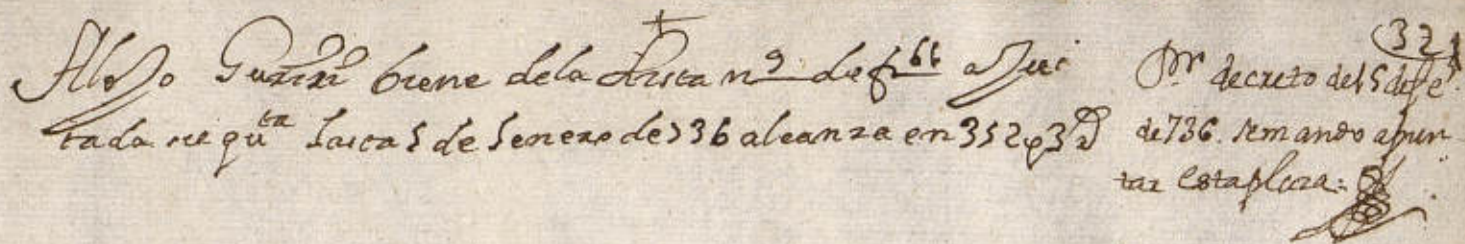 32
Alonso Guzmn biene dela Lista n9 de f.66 ajus
tada su qta hasta 5 de henero de 736 alcanza en 352p3R
Pr decreto del 5 de fe
de 736. se mando apun-
tar esta plaza: